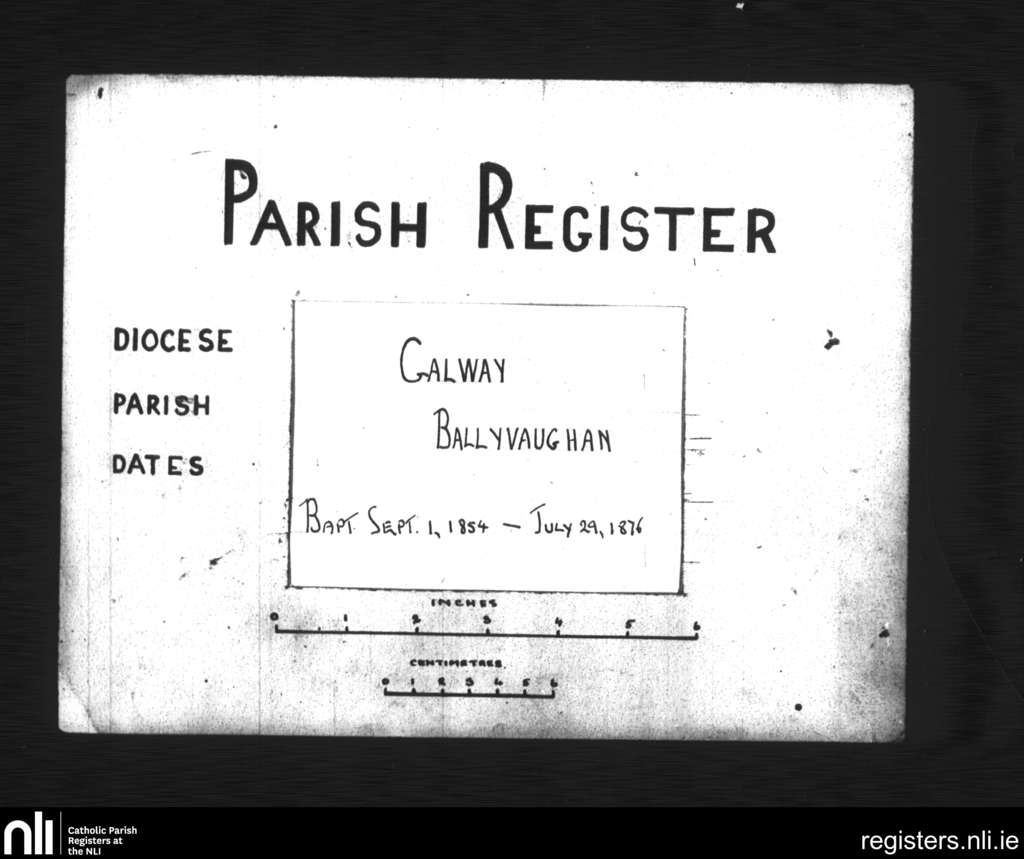 PARISH REGISTER
DIOCESE
GALWAY
PARISH
BALLYVAUGHAN
DATES
BAPT. SEPT. 1, 1854 — JULY 29, 1876
INCHES
0 1 2 3 4 5 6
CENTIMETRES
0 1 2 3 4 5 6
nli
Catholic Parish
Registers at
the NLI
registers.nli.ie